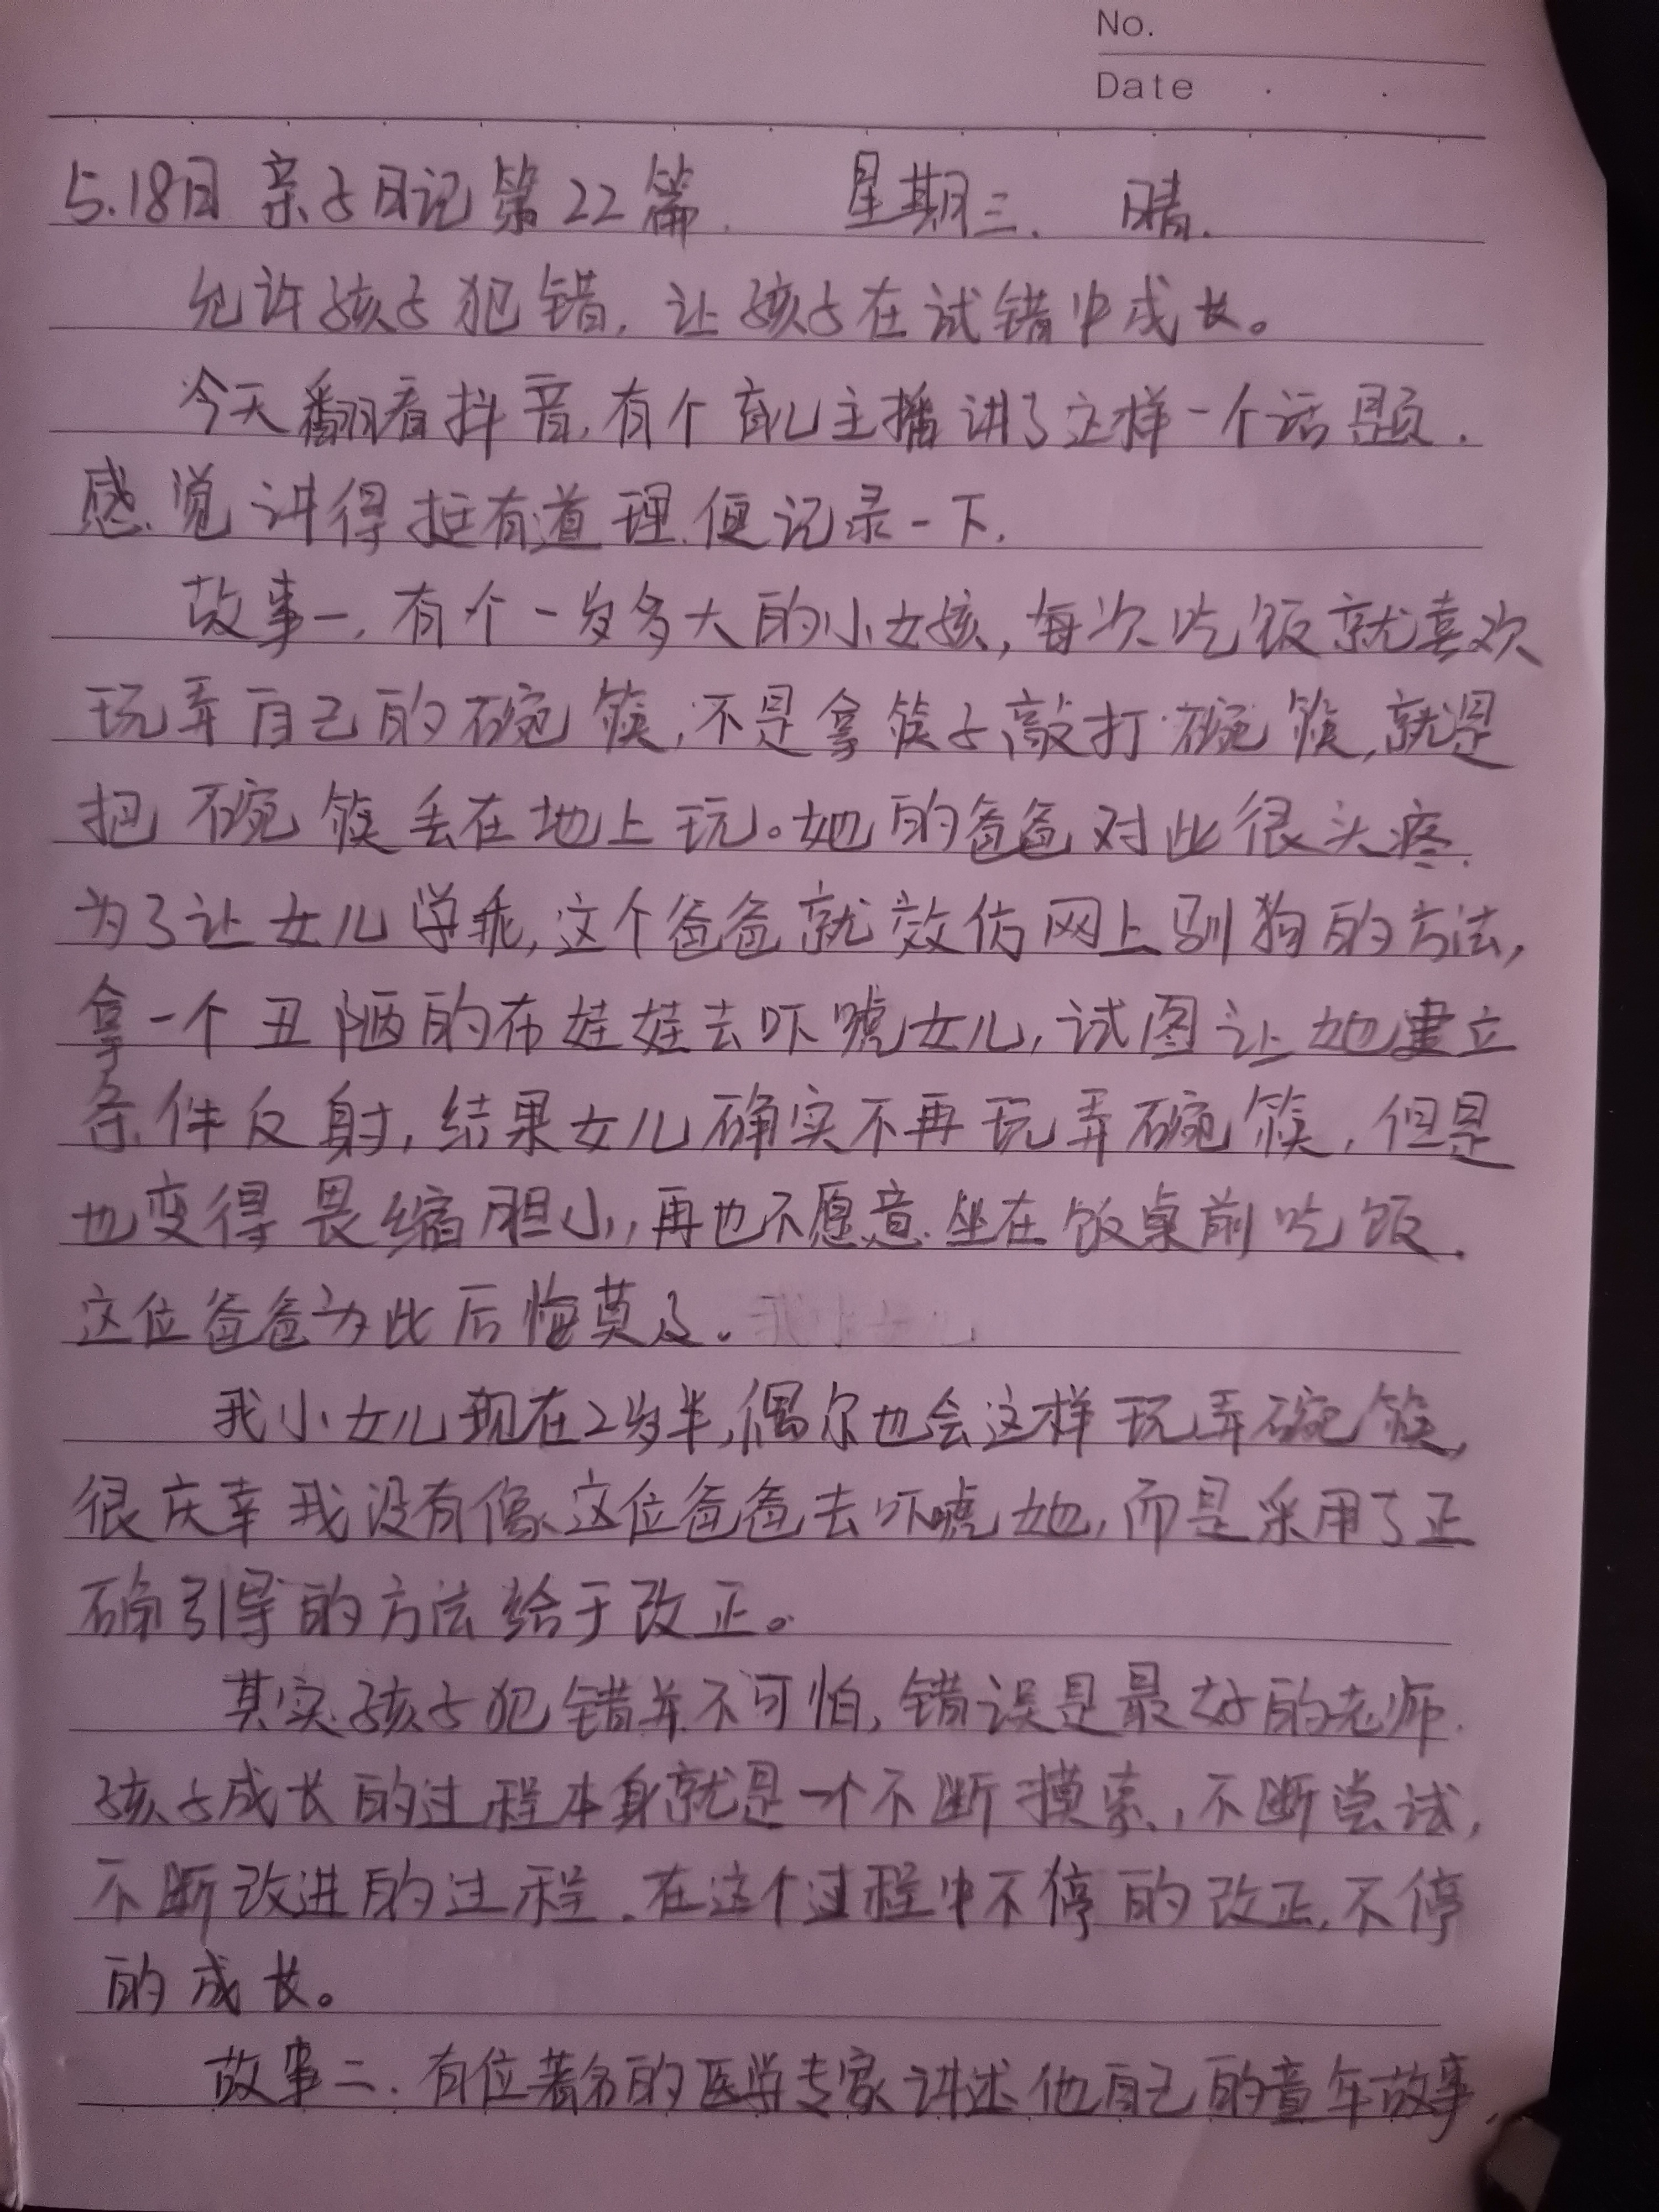 No.
Date
5.18日 亲子日记第22篇. 星期三. 晴.
允许孩子犯错, 让孩子在试错中成长。
今天翻看抖音, 有个育儿主播讲了这样一个话题.
感觉讲得挺有道理. 便记录一下.
故事一. 有个一岁多大的小女孩, 每次吃饭就喜欢
玩弄自己的碗筷, 不是拿筷子敲打碗筷, 就是
把碗筷丢在地上玩。她的爸爸对此很头疼.
为了让女儿学乖, 这个爸爸就效仿网上驯狗的方法,
拿一个丑陋的布娃娃去吓唬女儿, 试图让她建立
条件反射, 结果女儿确实不再玩弄碗筷, 但是
也变得畏缩胆小, 再也不愿意坐在饭桌前吃饭.
这位爸爸为此后悔莫及。
我小女儿现在2岁半, 偶尔也会这样玩弄碗筷,
很庆幸我没有像这位爸爸去吓唬她, 而是采用了正
确引导的方法给于改正。
其实孩子犯错并不可怕, 错误是最好的老师.
孩子成长的过程本身就是一个不断摸索, 不断尝试,
不断改进的过程. 在这个过程中不停的改正, 不停
的成长。
故事二. 有位著名的医学专家讲述他自己的童年故事,